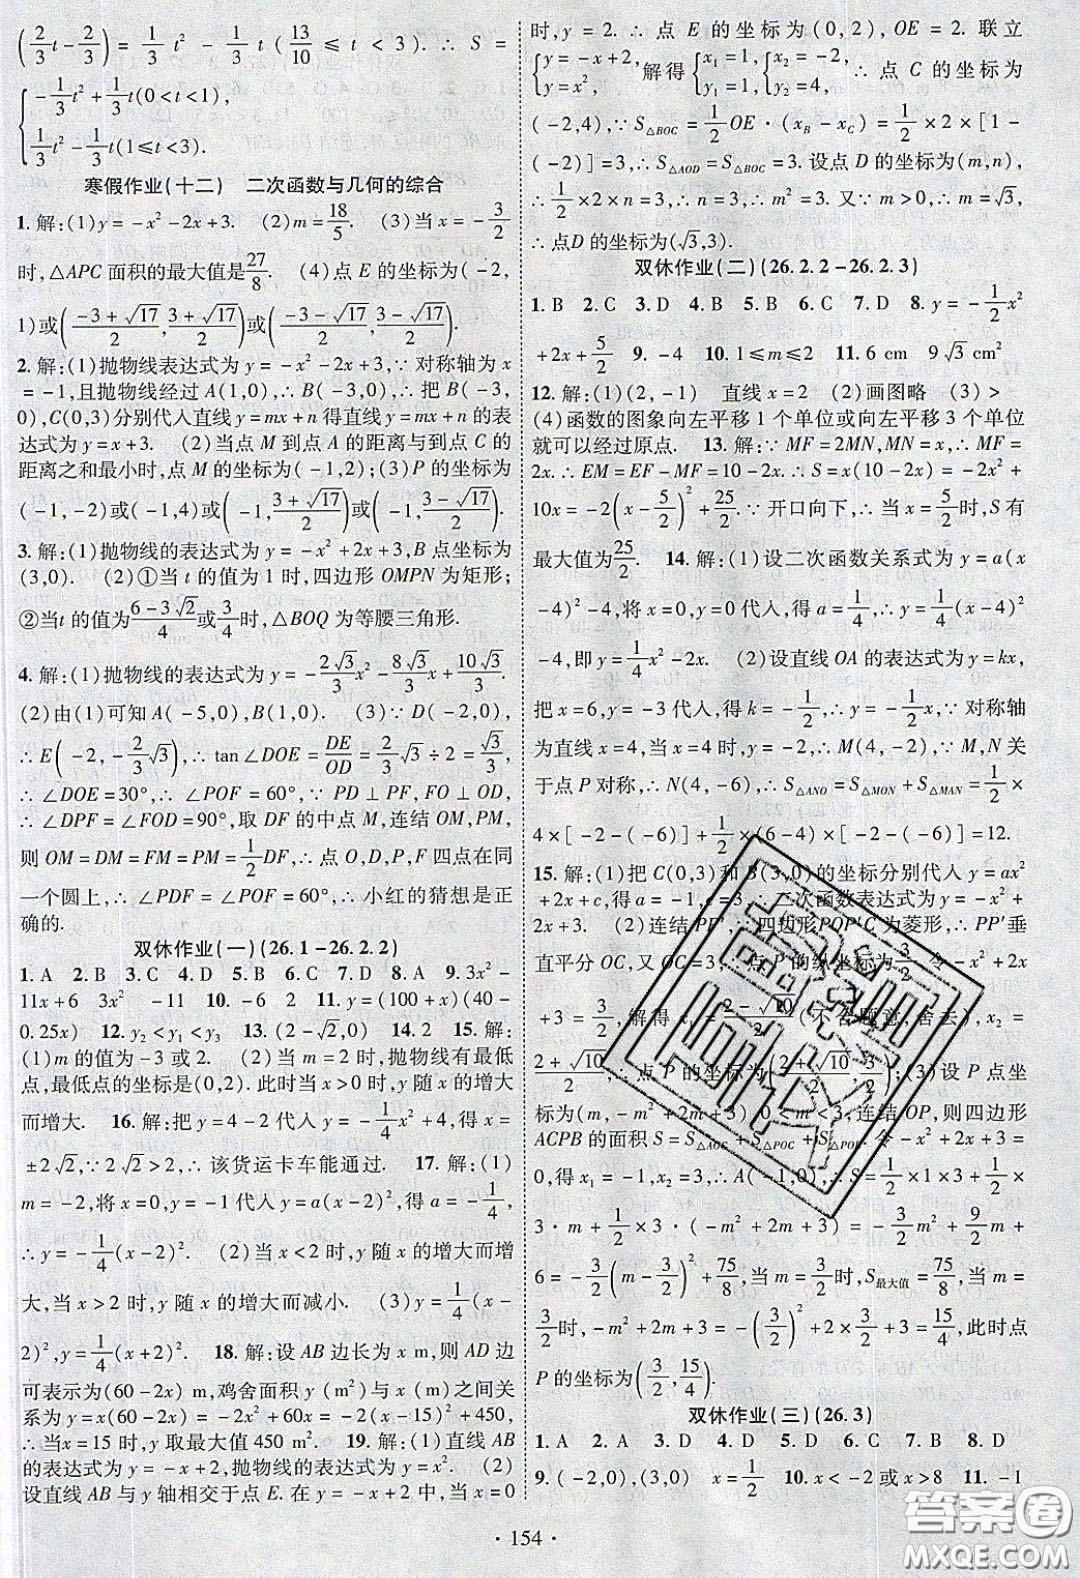 (2/3 t - 2/3) = 1/3 t² - 1/3 t (13/10 ≤ t < 3). ∴ S =
{ -1/3 t² + 1/3 t (0 < t < 1),
1/3 t² - 1/3 t (1 ≤ t < 3).
寒假作业(十二) 二次函数与几何的综合
1. 解:(1)y = -x² - 2x + 3. (2)m = 18/5. (3)当 x = -3/2
时,△APC 面积的最大值是 27/8. (4)点 E 的坐标为(-2,
1)或((-3+√17)/2, (3+√17)/2)或((-3-√17)/2, (3-√17)/2).
2. 解:(1)抛物线表达式为 y = -x² - 2x + 3,∵ 对称轴为 x
= -1,且抛物线经过 A(1,0),∴ B(-3,0),∴ 把 B(-3,
0),C(0,3)分别代入直线 y = mx + n 得直线 y = mx + n 的表
达式为 y = x + 3. (2)当点 M 到点 A 的距离与到点 C 的
距离之和最小时,点 M 的坐标为(-1,2);(3)P 的坐标为
(-1,-2)或(-1,4)或(-1, (3+√17)/2)或(-1, (3-√17)/2).
3. 解:(1)抛物线的表达式为 y = -x² + 2x + 3,B 点坐标为
(3,0). (2)①当 t 的值为 1 时,四边形 OMPN 为矩形;
②当t 的值为 (6-3√2)/4 或 3/4 时,△BOQ 为等腰三角形.
4. 解:(1)抛物线的表达式为 y = -2√3/3 x² - 8√3/3 x + 10√3/3.
(2)由(1)可知 A(-5,0),B(1,0). (3)∵ D(-2,0),
∴ E(-2, -2/3 √3),∴ tan∠DOE = DE/OD = 2/3 √3 ÷ 2 = √3/3,
∴ ∠DOE = 30°,∴ ∠POF = 60°,∵ PD ⊥ PF, FO ⊥ OD,
∴ ∠DPF = ∠FOD = 90°,取 DF 的中点 M,连结 OM,PM,
则 OM = DM = FM = PM = 1/2 DF,∴ 点 O,D,P,F 四点在同
一个圆上,∴ ∠PDF = ∠POF = 60°,∴ 小红的猜想是正
确的.
双休作业(一)(26.1-26.2.2)
1. A 2. B 3. C 4. D 5. B 6. A 7. D 8. A 9. 3x² -
11x + 6 3x² -11 10. -6 2 11. y = (100 + x)(40 -
0.25x) 12. y₂ < y₁ < y₃ 13. (2 - √2,0) 14. 2 15. 解:
(1)m 的值为 -3 或 2. (2)当 m = 2 时,抛物线有最低
点,最低点的坐标是(0,2). 此时当 x > 0 时,y 随 x 的增大
而增大. 16. 解:把 y = 4 - 2 代入 y = -1/4 x² + 4,得 x =
±2√2,∵ 2√2 > 2,∴ 该货运卡车能通过. 17. 解:(1)
m = -2,将 x = 0,y = -1 代入 y = a(x - 2)²,得 a = -1/4,
∴ y = -1/4 (x - 2)². (2)当 x < 2 时,y 随 x 的增大而增
大,当 x > 2 时,y 随 x 的增大而减小. (3)y = 1/4 (x -
2)²,y = 1/4 (x + 2)². 18. 解:设 AB 边长为 x m,则 AD 边
可表示为(60 - 2x) m,鸡舍面积 y (m²)与 x (m)之间关
系为 y = x(60 - 2x) = -2x² + 60x = -2(x - 15)² + 450,
∴ 当 x = 15 时,y 取最大值 450 m². 19. 解:(1)直线 AB
的表达式为 y = -x + 2,抛物线的表达式为 y = x². (2)
设直线 AB 与 y 轴相交于点 E. 在 y = -x + 2 中,当 x = 0
时,y = 2. ∴ 点 E 的坐标为(0,2),OE = 2. 联立
{ y = -x + 2, y = x², 解得 { x₁ = 1, y₁ = 1, { x₂ = -2, y₂ = 4, ∴ 点 C 的坐标为
(-2,4),∵ S△BOC = 1/2 OE·(xB - xC) = 1/2 × 2 × [1 -
(-2)] = 3,∴ S△AOD = S△BOC = 3. 设点 D 的坐标为(m,n),
∴ 1/2 × 2 × n = 3,∴ n = 3,∴ m² = 3. ∵ m > 0,∴ m = √3,
∴ 点D 的坐标为(√3,3).
双休作业(二)(26.2.2-26.2.3)
1. B 2. C 3. D 4. B 5. B 6. C 7. D 8. y = -1/2 x²
+ 2x + 5/2 9. -4 10. 1 ≤ m ≤ 2 11. 6 cm 9√3 cm²
12. 解:(1)(2,-1) 直线 x = 2 (2)画图略 (3) >
(4)函数的图象向左平移 1 个单位或向左平移 3 个单位
就可以经过原点. 13. 解:∵ MF = 2MN,MN = x,∴ MF =
2x. ∴ EM = EF - MF = 10 - 2x. ∴ S = x(10 - 2x) = -2x² +
10x = -2(x - 5/2)² + 25/2. ∵ 开口向下,∴ 当 x = 5/2 时,S 有
最大值为 25/2. 14. 解:(1)设二次函数关系式为 y = a(x
-4)² - 4,将 x = 0,y = 0 代入,得 a = 1/4,∴ y = 1/4 (x - 4)²
-4,即 y = 1/4 x² - 2x. (2)设直线 OA 的表达式为 y = kx,
把 x = 6,y = -3 代入,得 k = -1/2,∴ y = -1/2 x,∵ 对称轴
为直线 x = 4,当 x = 4 时,y = -2,∴ M(4,-2),∵ M,N 关
于点 P 对称,∴ N(4,-6),∴ S△ANO = S△MON + S△MAN = 1/2 ×
4 × [-2 - (-6)] + 1/2 × (6 - 4) × [-2 - (-6)] = 12.
15. 解:(1)把 C(0,3)和 B(3,0)的坐标分别代入 y = ax²
+ 2x + c,得 a = -1,c = 3,∴ 二次函数表达式为 y = -x² +
2x + 3. (2)连结 PP′,∵ 四边形 POP′C 为菱形,∴ PP′
垂直平分 OC,又 OC = 3,∴ 点 P 的纵坐标为 3/2. 令 -x² + 2x
+ 3 = 3/2,解得 x₁ = (2-√10)/2 (不合题意,舍去),x₂ =
(2+√10)/2,∴ 点 P 的坐标为((2+√10)/2, 3/2);(3)设 P 点坐
标为(m, -m² + 2m + 3),0 < m < 3,连结 OP,则四边形
ACPB 的面积 S = S△AOC + S△POC + S 令 -x² + 2x + 3 =
0,得 x₁ = -1,x₂ = 3,∴ A(-1,0),∴ S = 1/2 × 1 × 3 + 1/2 ×
3·m + 1/2 × 3·(-m² + 2m + 3) = -3/2 m² + 9/2 m +
6 = -3/2 (m - 3/2)² + 75/8,当 m = 3/2 时,S最大值 = 75/8,当 m =
3/2 时,-m² + 2m + 3 = -(3/2)² + 2 × 3/2 + 3 = 15/4,此时点
P 的坐标为(3/2, 15/4).
双休作业(三)(26.3)
1. A 2. A 3. D 4. D 5. D 6. B 7. B 8. D
9. (-2,0),(3,0) x = 1/2 10. x < -2 或 x > 8 11. -1
· 154 ·
答案圈
MXQE.COM